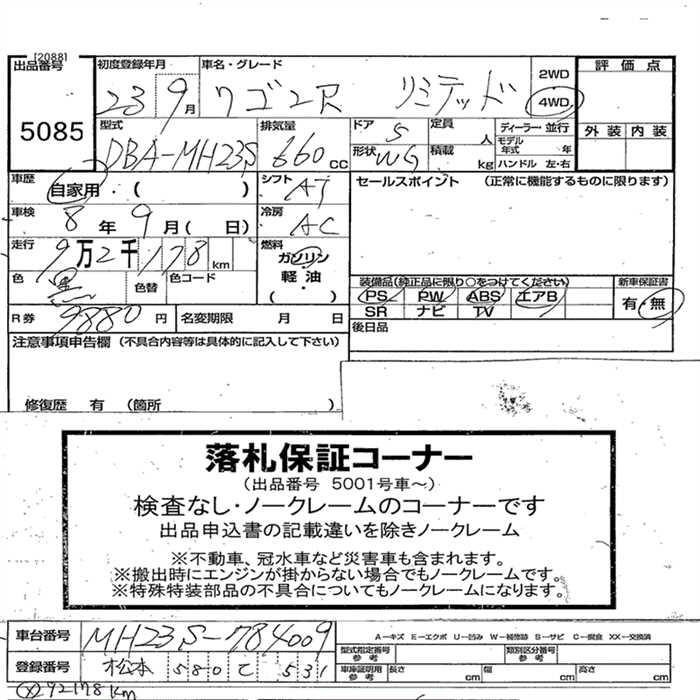 [2088]
出品番号 初度登録年月 車名・グレード 2WD 評価点
5085 23 9月 ワゴンR リミテッド 4WD
型式 排気量 ドア 定員 ディーラー・並行 外装 内装
DBA-MH23S 660cc 5 人 モデル年式 年
形状 WG 積載 kg ハンドル 左・右
車歴 自家用・( ) シフト AT セールスポイント (正常に機能するものに限ります)
車検 8年9月( 日) 冷房 AC
走行 9万2千178km 燃料 ガソリン
軽油・( )
色 黒 色替 色コード 装備品(純正品に限り○をつけてください) 新車保証書
PS PW ABS エアB 有・無
R券 9880円 名変期限 月 日 SR ナビ TV
注意事項申告欄 (不具合内容等は具体的に記入して下さい) 後日品
修復歴 有 (箇所 )
落札保証コーナー
(出品番号 5001号車~)
検査なし・ノークレームのコーナーです
出品申込書の記載違いを除きノークレーム
※不動車、冠水車など災害車も含まれます。
※搬出時にエンジンが掛からない場合でもノークレームです。
※特殊特装部品の不具合についてもノークレームになります。
車台番号 MH23S-784009 A-キズ E-エクボ U-凹み W-補修跡 S-サビ C-腐食 XX-交換済
型式指定番号 参考 類別区分番号 参考
登録番号 松本 580 で 531 車庫証明用 参考 長さ cm 幅 cm 高さ cm
92178Km